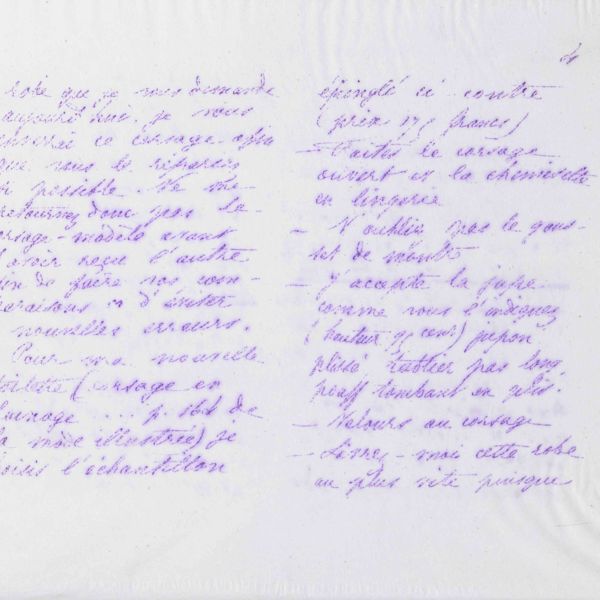 robe que je vous demande
aujourd'hui, je vous
enverrai ce corsage afin
que vous le répariez
si possible. Ne me
retournez donc pas le
corsage-modèle avant
d'avoir reçu l'autre
afin de faire vos com-
paraisons et d'éviter
nouvelles erreurs.
Pour ma nouvelle
toilette (corsage en
lainage ... p. 164 de
la mode illustrée) je
choisis l'échantillon
4
épinglé ci contre
(prix 175 francs)
– Faites le corsage
ouvert et la chemisette
en lingerie
– N'oubliez pas le gous-
set de montre
– J'accepte la jupe
comme vous l'indiquez
(hauteur 95 cent) jupon
plissé tablier pas long
pouff tombant en plis.
– Velours au corsage
– Livrez-moi cette robe
au plus vite puisque